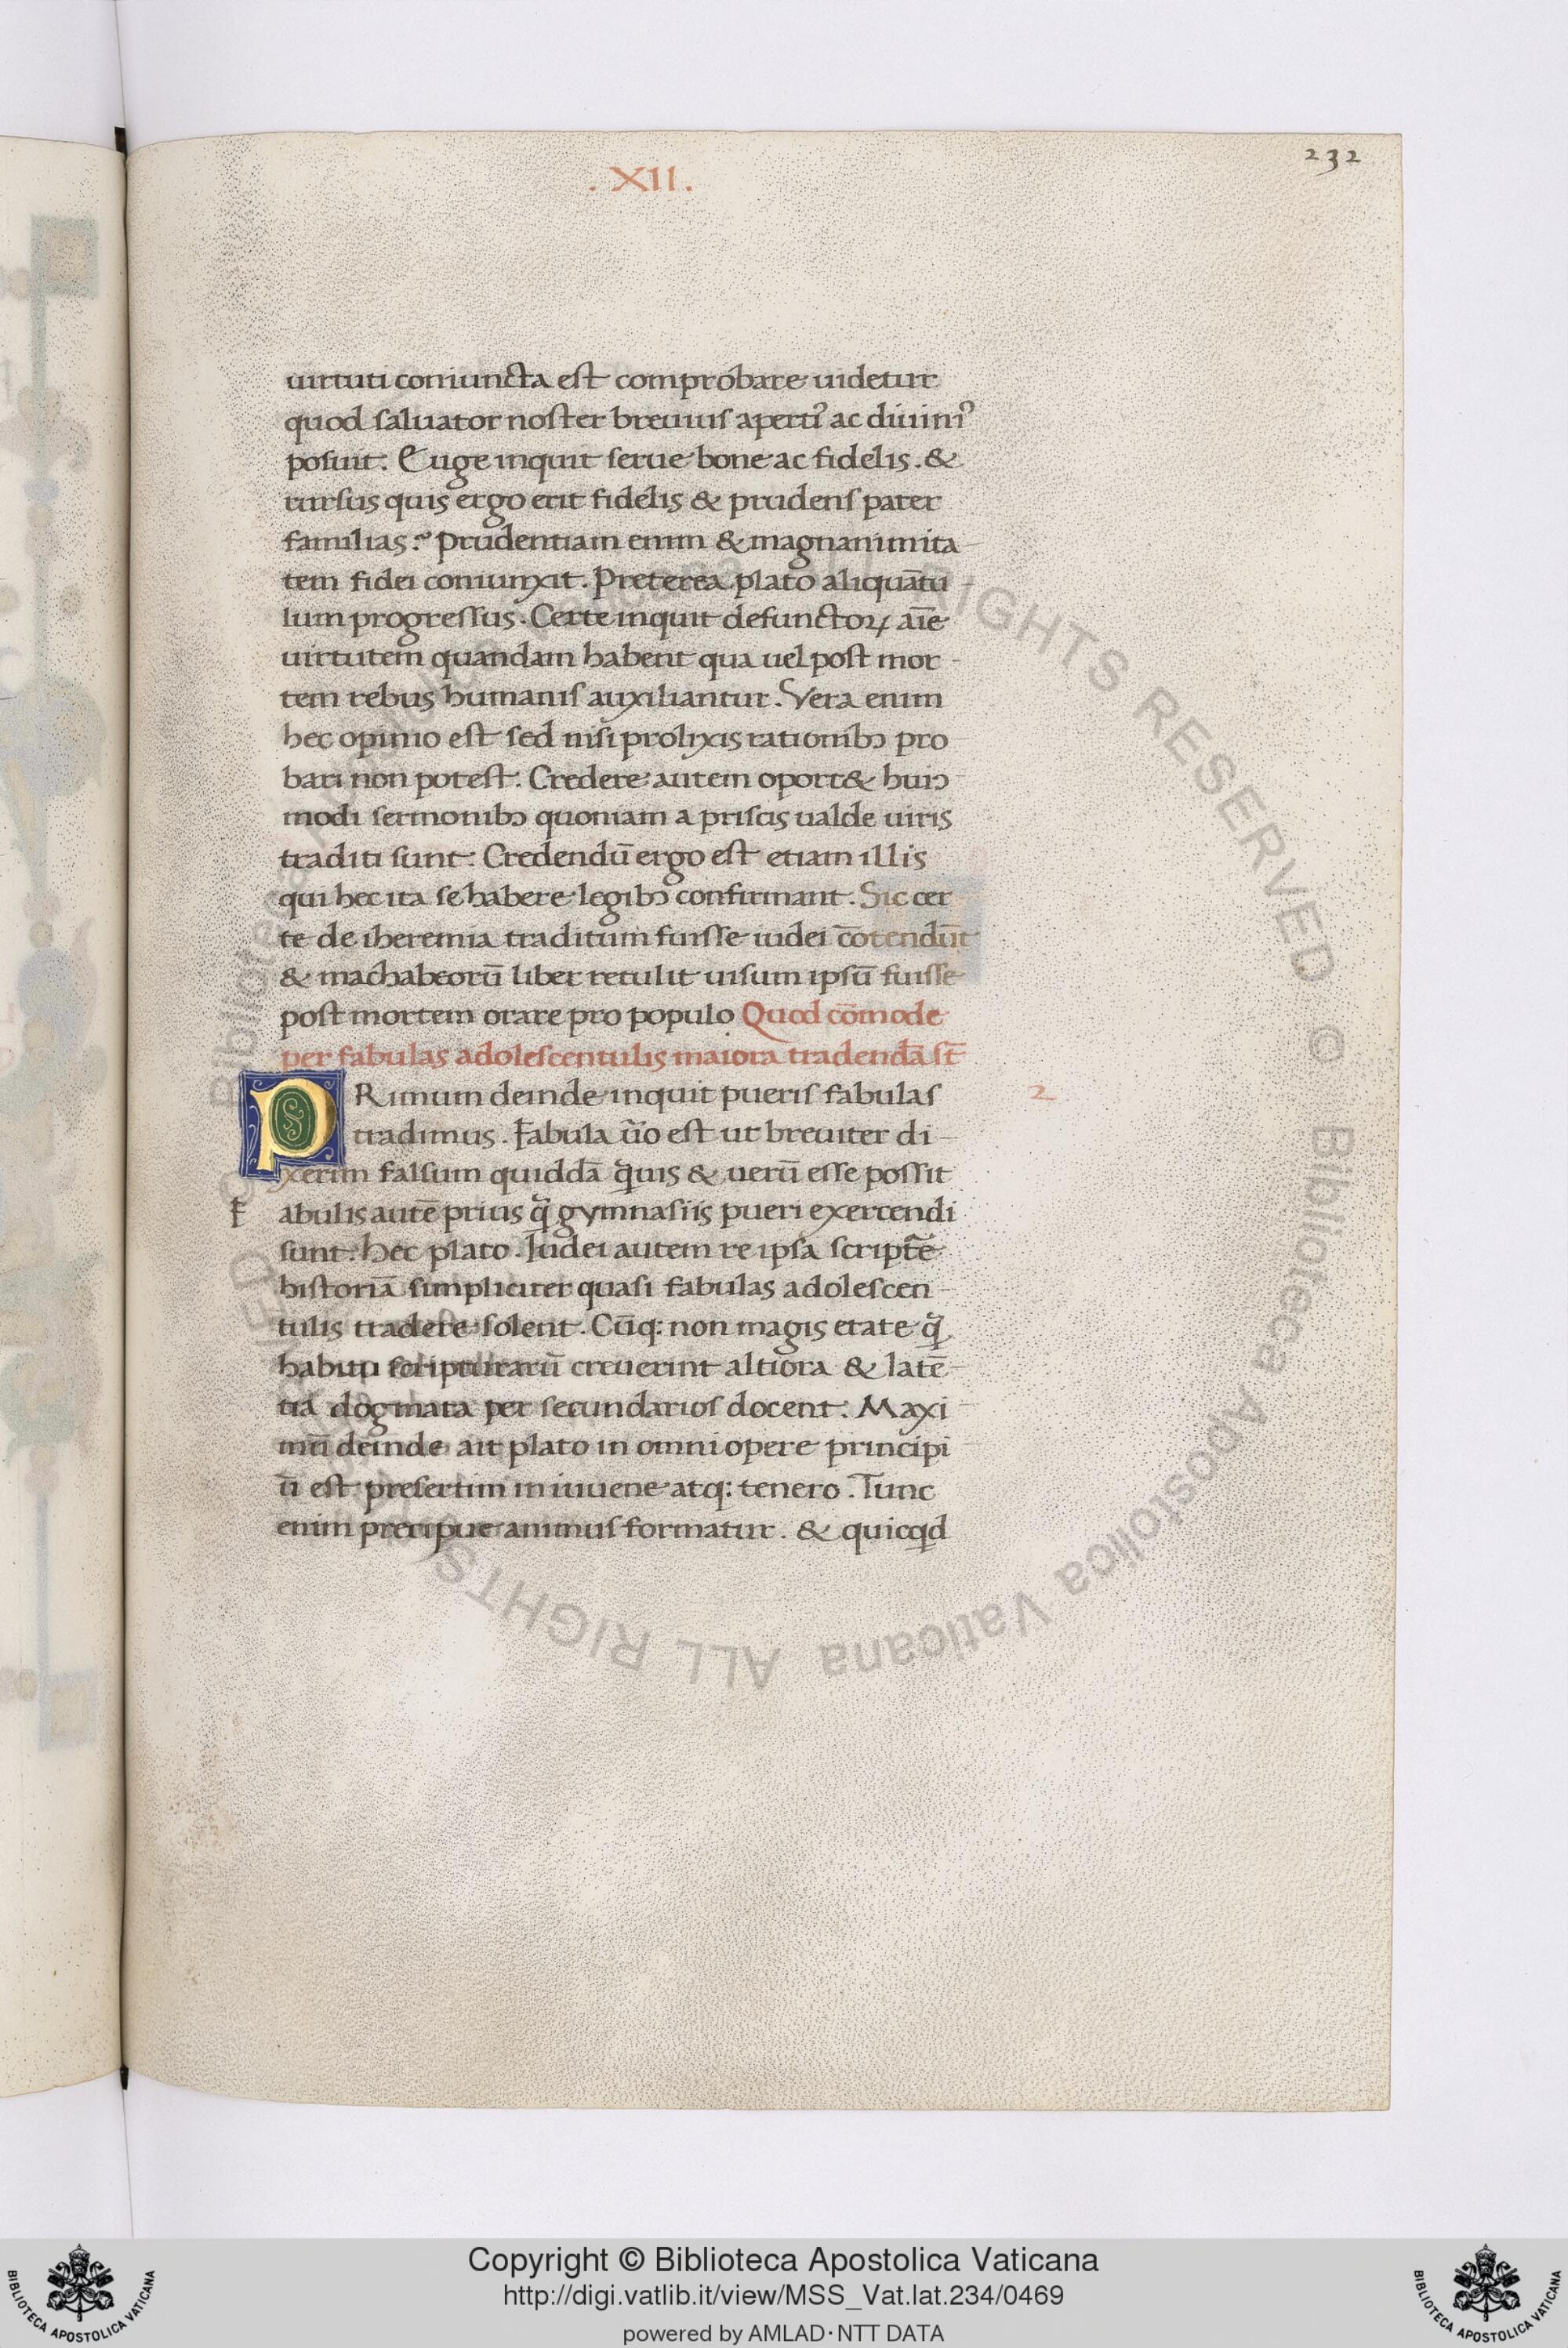 232
.XII.
uirtuti coniuncta est comprobare uidetur
quod saluator noster breuius aperti᾽ ac diuini᾽
posuit. Euge inquit serue bone ac fidelis. &
rursus quis ergo erit fidelis & prudens pater
familias? prudentiam enim & magnanimita-
tem fidei coniunxit. Preterea plato aliquātu-
lum progressus. Certe inquit defunctoꝝ aīe
uirtutem quandam habent qua uel post mor-
tem rebus humanis auxiliantur. Vera enim
hec opinio est sed nisi prolixis rationibꝫ pro
bari non potest. Credere autem oport& huiꝰ
modi sermonibꝫ quoniam a priscis ualde uiris
traditi sunt. Credendū ergo est etiam illis
qui hec ita se habere legibꝫ confirmant. Sic cer
te de iheremia traditum fuisse iudei cōtendūt
& machabeorū liber retulit uisum ipsū fuisse
post mortem orare pro populo Quod cōmode
per fabulas adolescentulis maiora tradendā st̄
PRimum deinde inquit pueris fabulas
2
tradimus. Fabula ūo est ut breuiter di-
xerim falsum quiddā quis & uerū esse possit
F abulis autē prius q̄ gymnasiis pueri exercendi
sunt. hec plato. Iudei autem re ipsa scriptē
historiā simpliciter quasi fabulas adolescen-
tulis tradere solent. Cūq: non magis etate q̄
habitu scripturarū creuerint altiora & latē-
tia dogmata per secundarios docent. Maxi
mū deinde ait plato in omni opere principi
ū est presertim in iuuene atq: tenero. Tunc
enim precipue animus formatur. & quicqd
Copyright © Biblioteca Apostolica Vaticana
http://digi.vatlib.it/view/MSS_Vat.lat.234/0469
powered by AMLAD·NTT DATA
BIBLIOTECA APOSTOLICA VATICANA
BIBLIOTECA APOSTOLICA VATICANA
© Biblioteca Apostolica Vaticana ALL RIGHTS RESERVED © Biblioteca Apostolica Vaticana ALL RIGHTS RESERVED